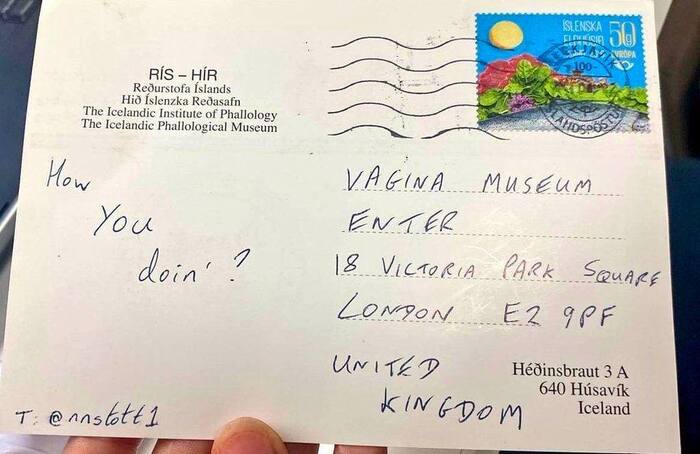 RÍS – HÍR
Reðurstofa Íslands
Hið Íslenzka Reðasafn
The Icelandic Institute of Phallology
The Icelandic Phallological Museum
ÍSLENSKA
50g
EVRÓPA
100
LANDSPÓSTU
How
You
doin'?
VAGINA MUSEUM
ENTER
18 VICTORIA PARK SQUARE
LONDON E2 9PF
UNITED
KINGDOM
Héðinsbraut 3 A
640 Húsavík
Iceland
T: @nnstott1